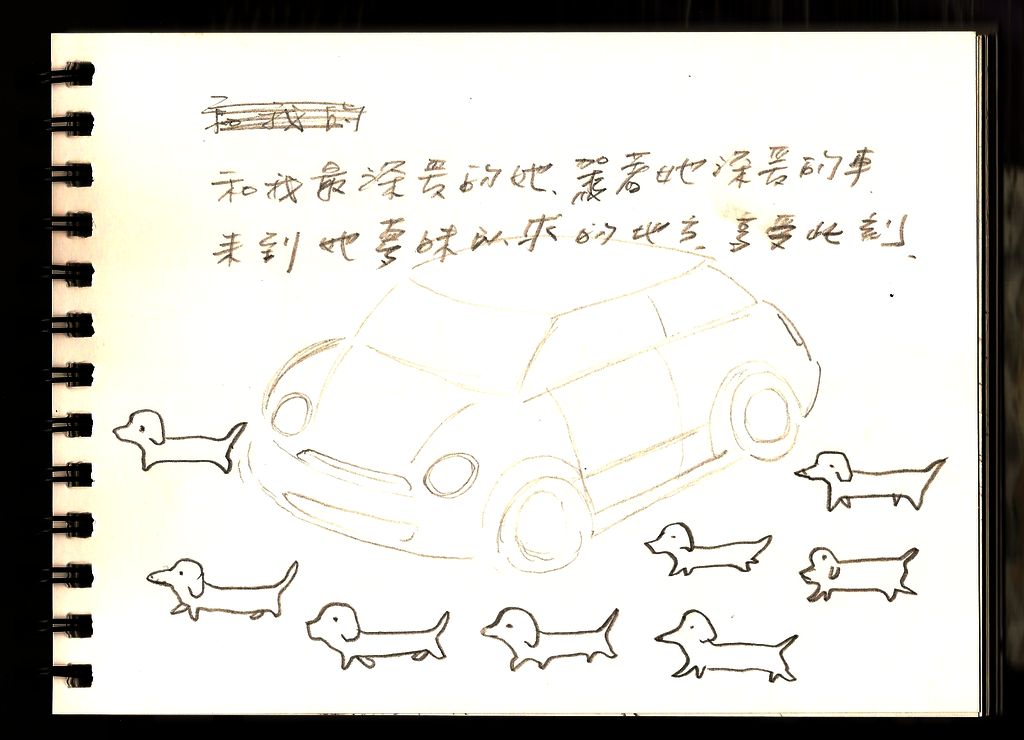 和我的
和我最深愛的她、駕著她深愛的車
来到她夢味以求的地方、享受此刻.